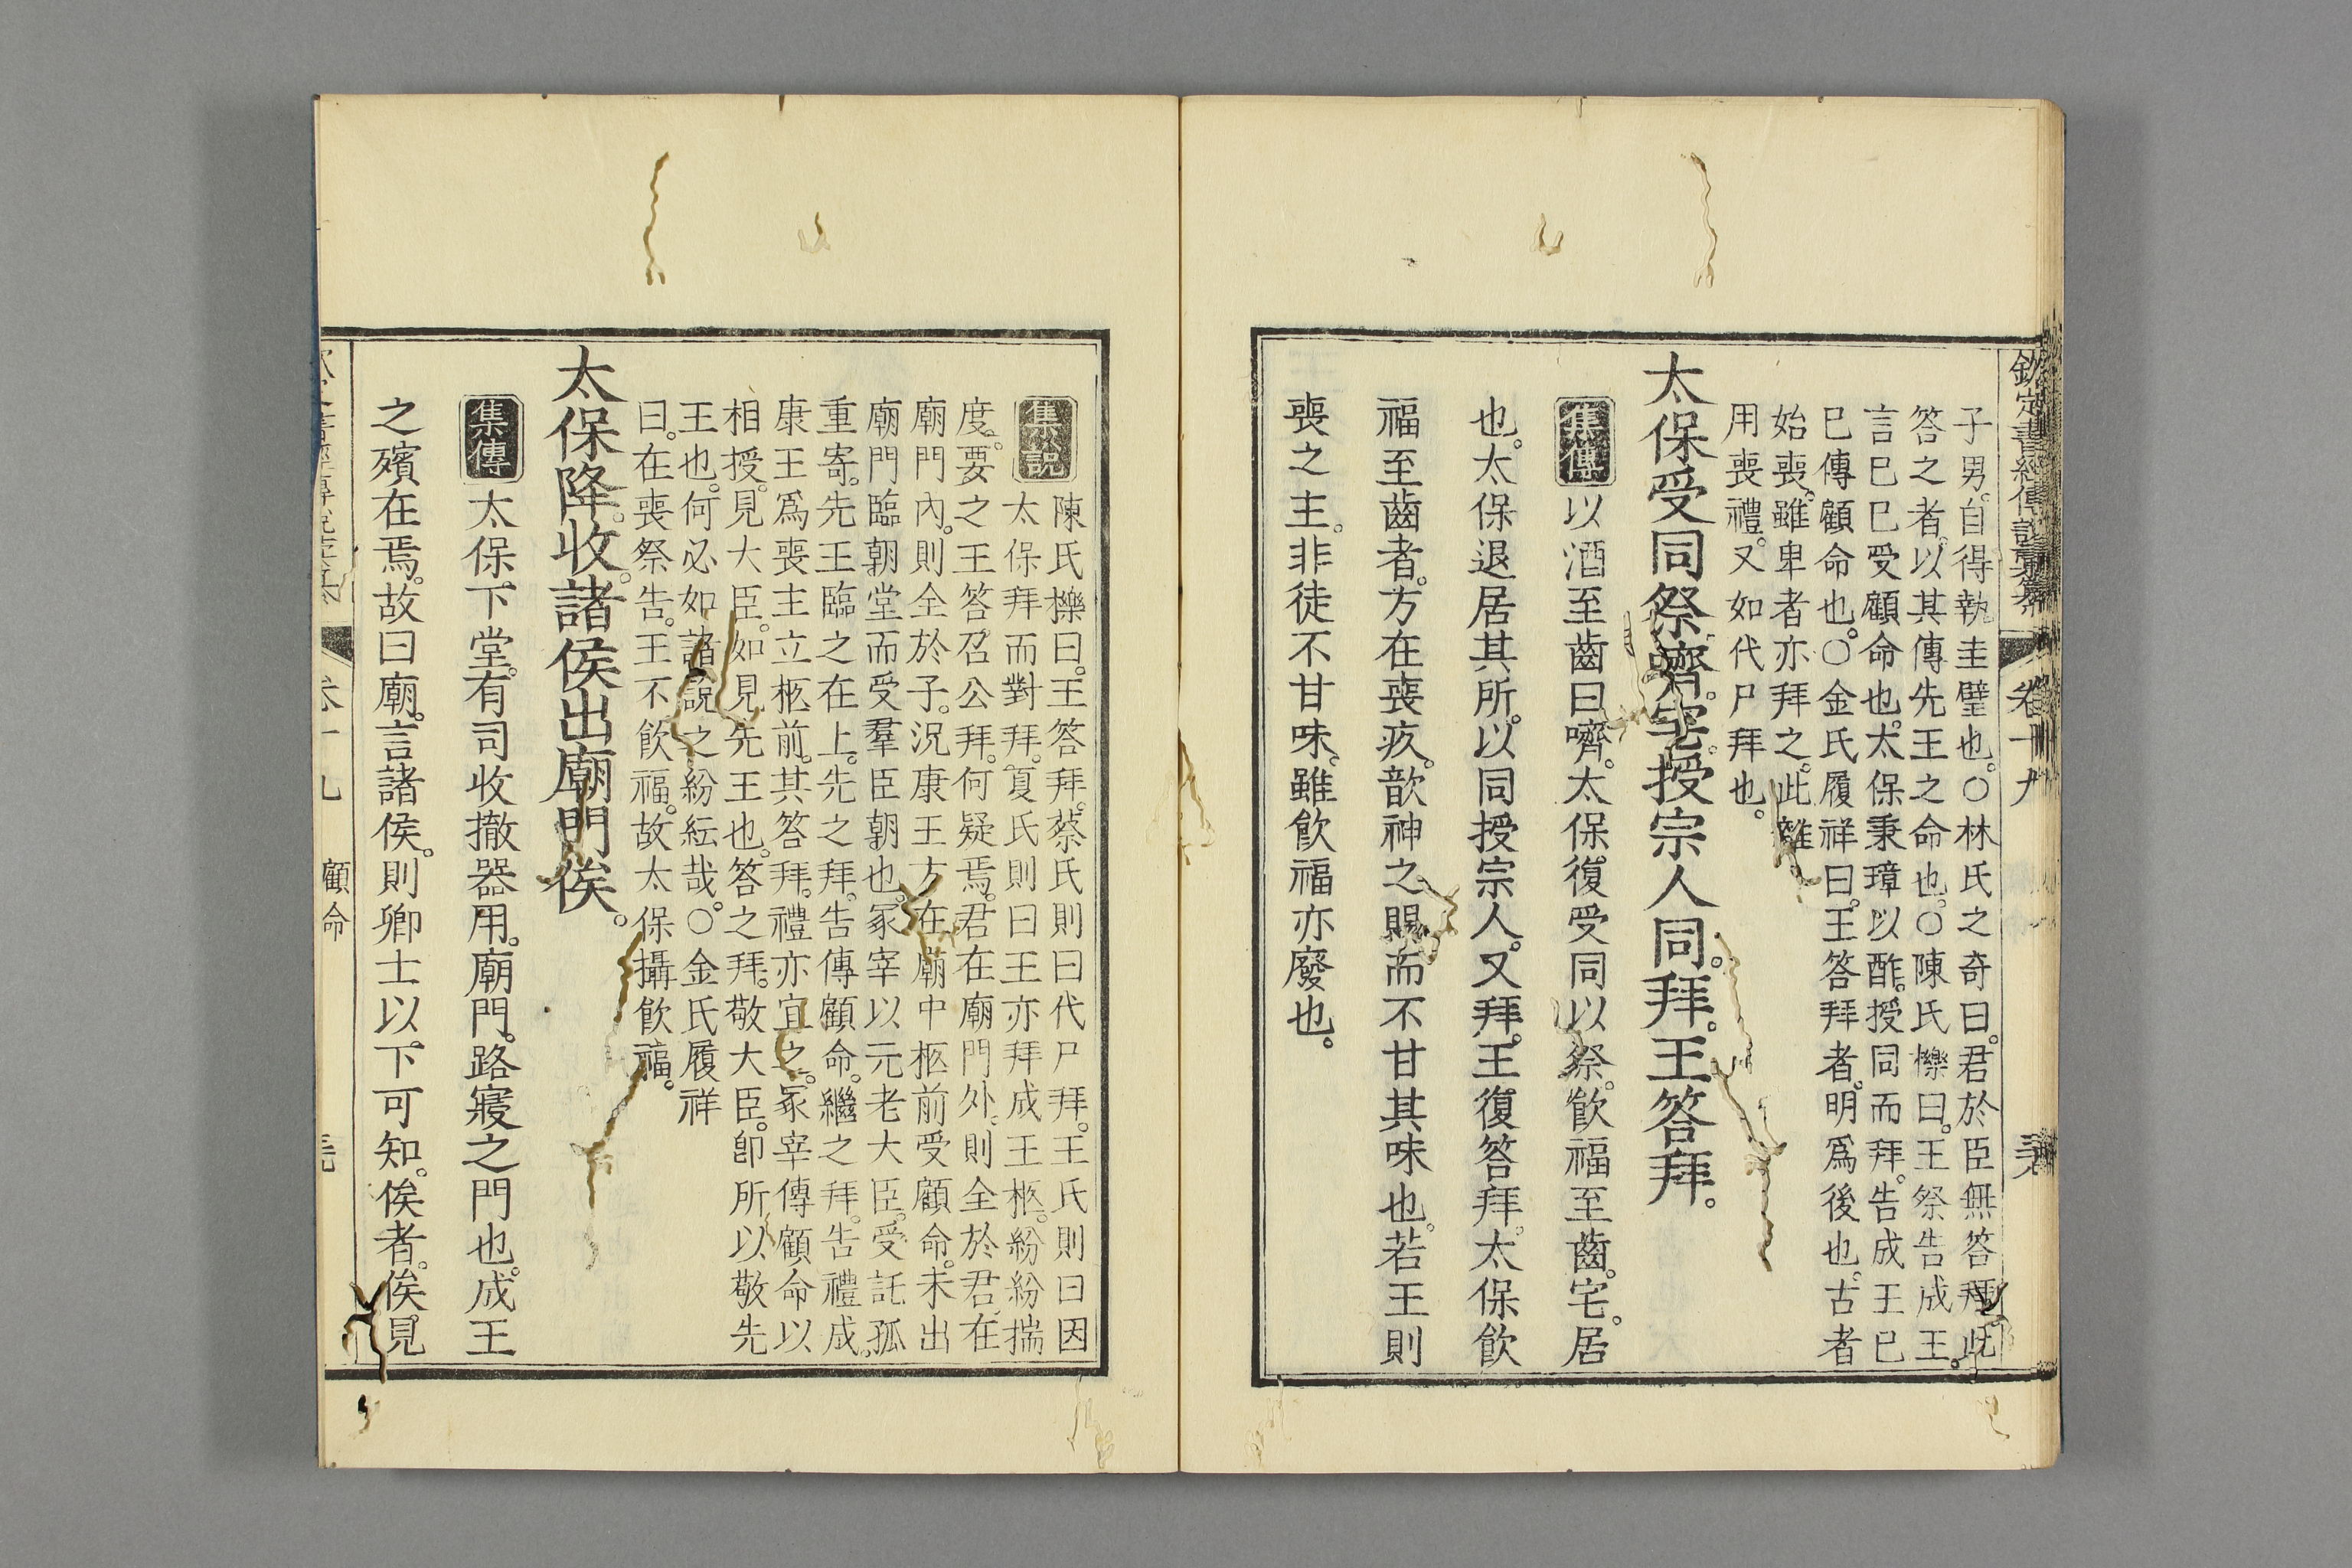 欽定書經傳說彙纂 卷十九
子男。自得執圭璧也。○林氏之奇曰。君於臣無答拜。此
答之者。以其傳先王之命也。○陳氏櫟曰。王祭告成王。
言已已受顧命也。太保秉璋以酢。授同而拜。告成王已
已傳顧命也。○金氏履祥曰。王答拜者。明爲後也。古者
始喪。雖卑者亦拜之。此雖
用喪禮。又如代尸拜也。
太保受同祭嚌。宅。授宗人同。拜。王答拜。
集傳 以酒至齒曰嚌。太保復受同以祭。飮福至齒。宅。居
也。太保退居其所。以同授宗人。又拜。王復答拜。太保飮
福至齒者。方在喪疚。歆神之賜。而不甘其味也。若王則
喪之主。非徒不甘味。雖飮福亦廢也。
集說 陳氏櫟曰。王答拜。蔡氏則曰代尸拜。王氏則曰因
太保拜而對拜。夏氏則曰王亦拜成王柩。紛紛揣
度。要之王答召公拜。何疑焉。君在廟門外。則全於君。在
廟門內。則全於子。況康王方在廟中柩前受顧命。未出
廟門臨朝堂而受羣臣朝也。冢宰以元老大臣。受託孤
重寄。先王臨之在上。先之拜。告傳顧命。繼之拜。告禮成。
康王爲喪主立柩前。其答拜。禮亦宜之。冢宰傳顧命以
相授。見大臣。如見先王也。答之拜。敬大臣。卽所以敬先
王也。何必如諸說之紛紜哉。○金氏履祥
曰。在喪祭告。王不飮福。故太保攝飮福。
太保降。收。諸侯出廟門俟。
集傳 太保下堂。有司收撤器用。廟門。路寢之門也。成王
之殯在焉。故曰廟。言諸侯。則卿士以下可知。俟者。俟見
顧命